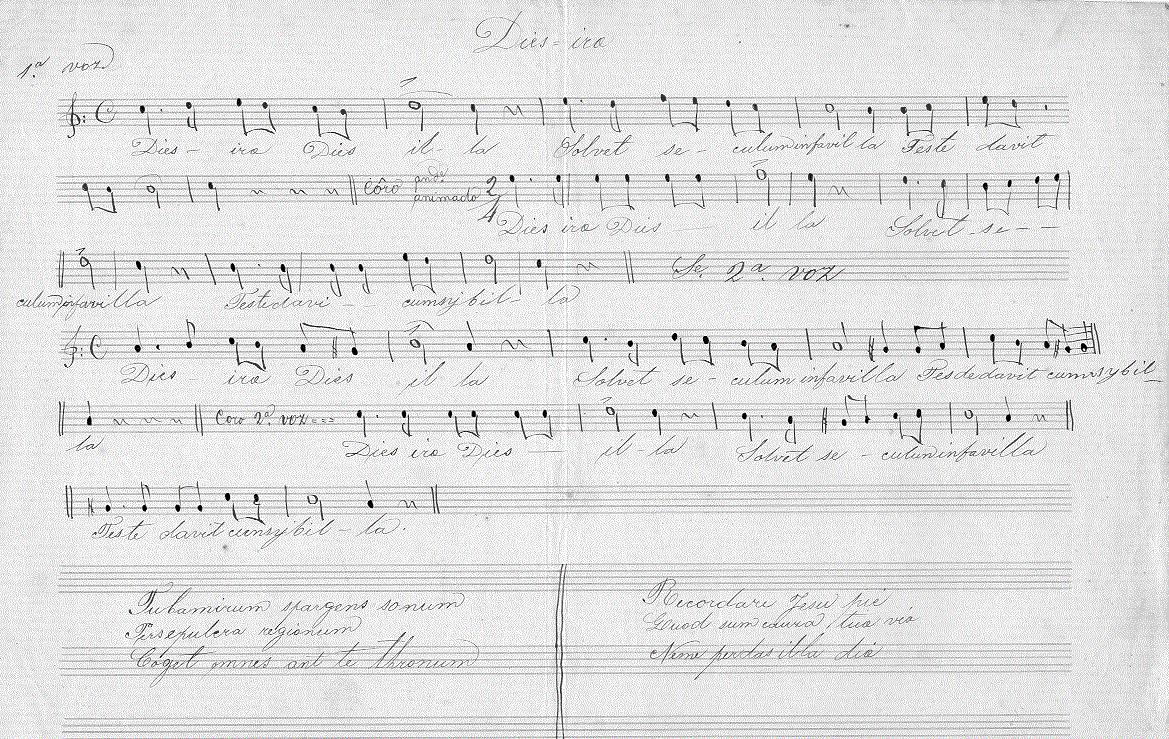 Dies = ira
1.ª voz
Dies - ira Dies il - la Solvet se - culum infavil la Teste davit
Côro andᵉ animado 2/4
Dies ira Dies il la Solvet - se - -
culum infavilla Teste davi - cumsybil - la Se. 2ª voz
Dies - ira Dies il la Solvet se - culum infavilla Tesdedavit cumsybil -
Coro 2ª voz = = =
la Dies ira Dies - il - la Solvet se - culum infavilla
Teste davit cumsybil - la.
Tubamirum spargens sonum
Persepulcra regionum
Coget omnes ant te thronum
Recordare Jesu pie
Quod sum caura tua via
Neme perdas illa die